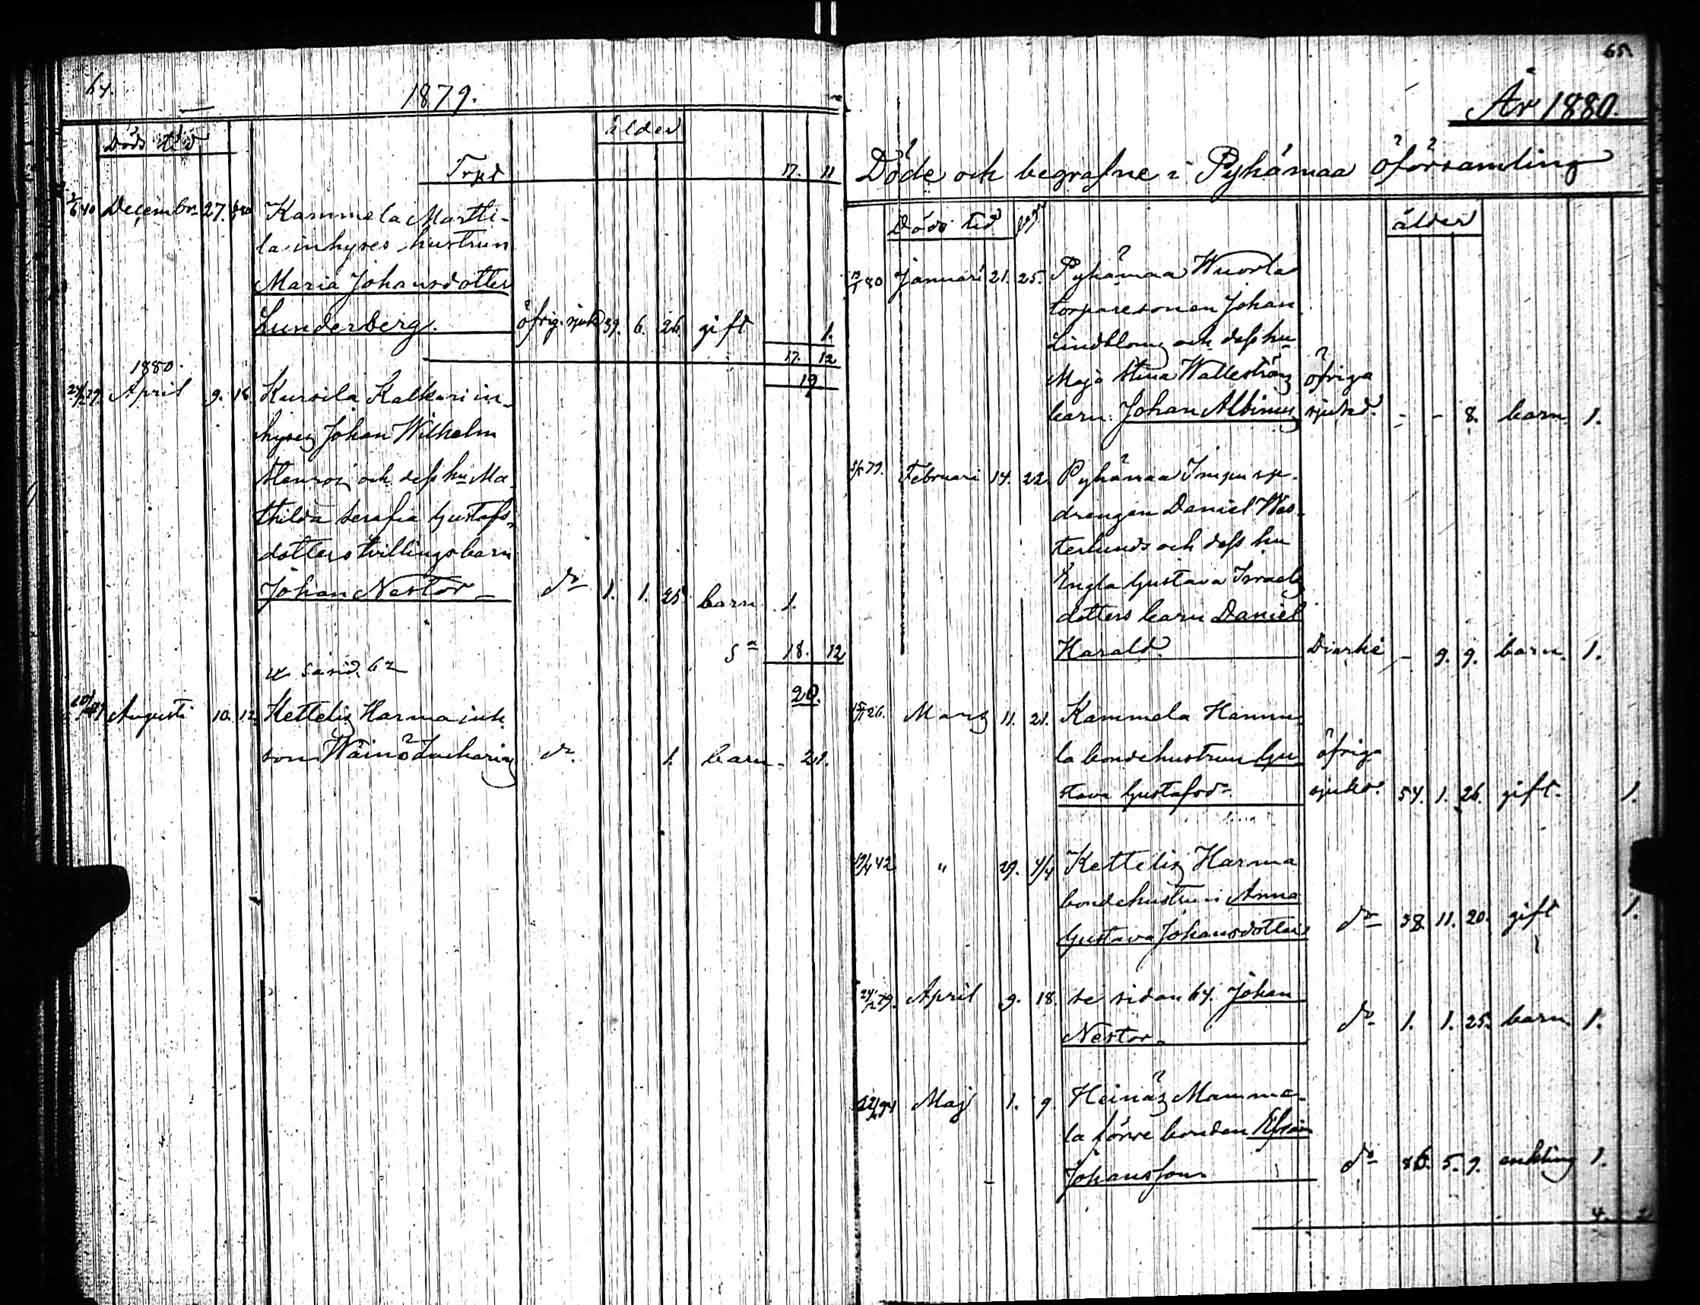 64.
1879.
Döds tid
ålder
Trpt 17. 11
2/6 40 December 27. Kammela Martti-
la inhyses hustrun
Maria Johansdotter
Lunderberg. öfrig. sjukd 39. 6. 26. gift 1.
17. 12
19
1880.
April 9. 18 Kursila Kalkari in-
hyses Johan Wilhelm
och dess hu Ma-
thilda Serafia Gustafs-
dotters tvillingsbarn
Johan Nestor do 1. 1. 25 barn 1.
Sa 18. 12
20.
Augusti 10. 12. Kettelis Harma inh.
son Wäinö Zacharias do 1. barn 21.
65.
År 1880.
Döde och begrafne i Pyhämaa församling
Döds tid
ålder
80 Januari 21. 25. Pyhämaa Wuorla
torparesonen Johan
Lindblom och dess hu
Maja Stina Wallström öfriga
barn: Johan Albinus sjukd. - - 8. barn 1.
79. Februari 14. 22. Pyhämaa
drengen Daniel Wes-
terlunds och dess hu
Engla Gustava Israels
dotters barn Daniel
Harald. Diarhé - 9. 9. barn. 1.
26. Mars 11. 21. Kammela Hannu-
la bondehustrun Gu öfriga
stava Gustafsdr. sjukd. 54. 1. 26. gift. 1.
42 " 29. 4/4 Kettelis Harma
bondehustrun Anna
Gustava Johansdotter do 38. 11. 20. gift 1.
24/2 79. April 9. 18. se sidan 64. Johan
Nestor. do 1. 1. 25. barn 1.
Maj 1. 9. Heinäs Mamma-
la förre bonden Efraim
Johansson do 86. 5. 9. enkling 1.
4. 2